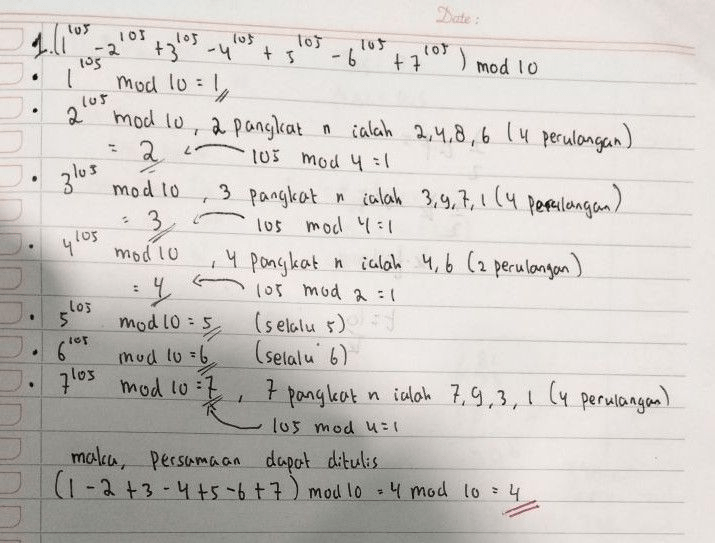 Date:
1. (1^105 - 2^105 + 3^105 - 4^105 + 5^105 - 6^105 + 7^105) mod 10
• 1^105 mod 10 = 1
• 2^105 mod 10, 2 pangkat n ialah 2,4,8,6 (4 perulangan)
= 2 ← 105 mod 4 = 1
• 3^105 mod 10, 3 pangkat n ialah 3,9,7,1 (4 perulangan)
= 3 ← 105 mod 4 = 1
• 4^105 mod 10, 4 pangkat n ialah 4,6 (2 perulangan)
= 4 ← 105 mod 2 = 1
• 5^105 mod 10 = 5 (selalu 5)
• 6^105 mod 10 = 6 (selalu 6)
• 7^105 mod 10 = 7, 7 pangkat n ialah 7,9,3,1 (4 perulangan)
105 mod 4 = 1
maka, persamaan dapat ditulis
(1 - 2 + 3 - 4 + 5 - 6 + 7) mod 10 = 4 mod 10 = 4